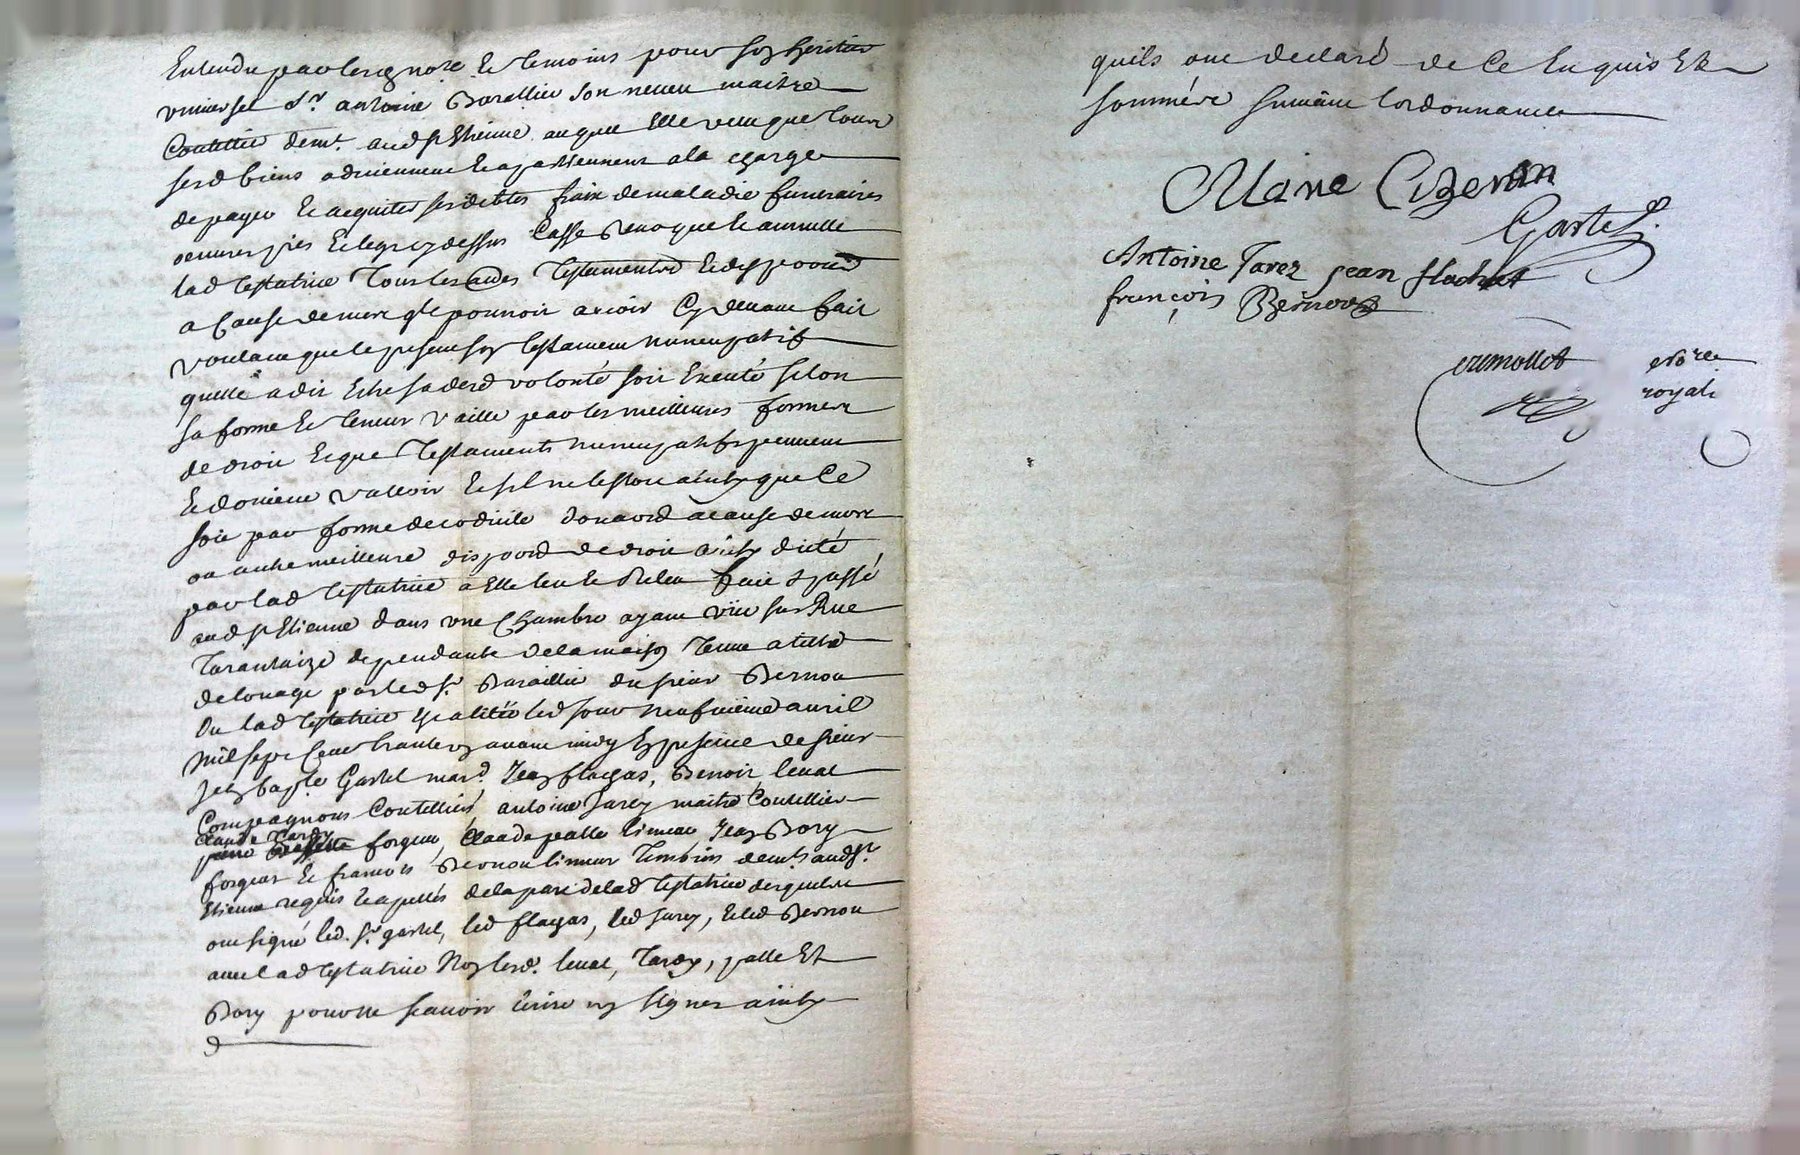 Entendu par lesd no.re Et temoins pour son heritier
universel S.r antoine Barallier son neveu maitre
Coutellier dem.t aud St Etienne auquel Elle veut que tous
sesd biens adviennent Et apartiennent a la charge
de payer Et acquiter ses debtes frais de maladie funeraires
oeuvres pies Et legs cy dessus Casse Revoque Et annulle
lad testatrice Tous les autres Testaments Et dispoons
a Cause de mort q.le pourroit avoir Cy devant fait
voulant que le present son testament nuncupatif
quelle a dit Estre sa dere volonté soit Executé selon
sa forme Et teneur vaille par les meilleures formes
de droit Et que Testaments nuncupatifs peuvent
Et doivent valloir Et sil ne le peut ainsy que Ce
soit par forme de codicile donaon a cause de mort
ou autre meilleure dispoon de droit ainsy dicté
par lad testatrice a Elle leu Et Releu fait & passé
aud St Etienne dans une Chambre ayant vüe sur Rue
Tarantaize dependante de la maison tenue a titre
de louage par led S.r Barallier du sieur Bernou
Ou lad testatrice Est alitée led jour neufvieme avril
mil sept Cent trente avant midy En presence de sieur
Jean bap.te Gastel mar.d Jean flachas, Benoit leual
Compagnons Coutelliers, antoine Jarey maitre Coutellier
Claude Tardy
forgeur, Claude palle limeur Jean Bory
forgeur Et francois Bernou limeur Temoins dem.ts aud St
Etienne requis Et apellés de la part de lad testatrice desquels
ont signé led. S.r gastel, led flachas, led Jarey, Et led Bernou
avec lad testatrice Non lesd. leual, Tardy, palle Et
Bory pour ne scavoir Ecrire ny signer ainsy
quils ont declaré de Ce Enquis Et
sommés suivant lordonnance
Marie Cizeron
Gastel
Antoine Jarez jean flachat
françois Bernou
no.re
royal